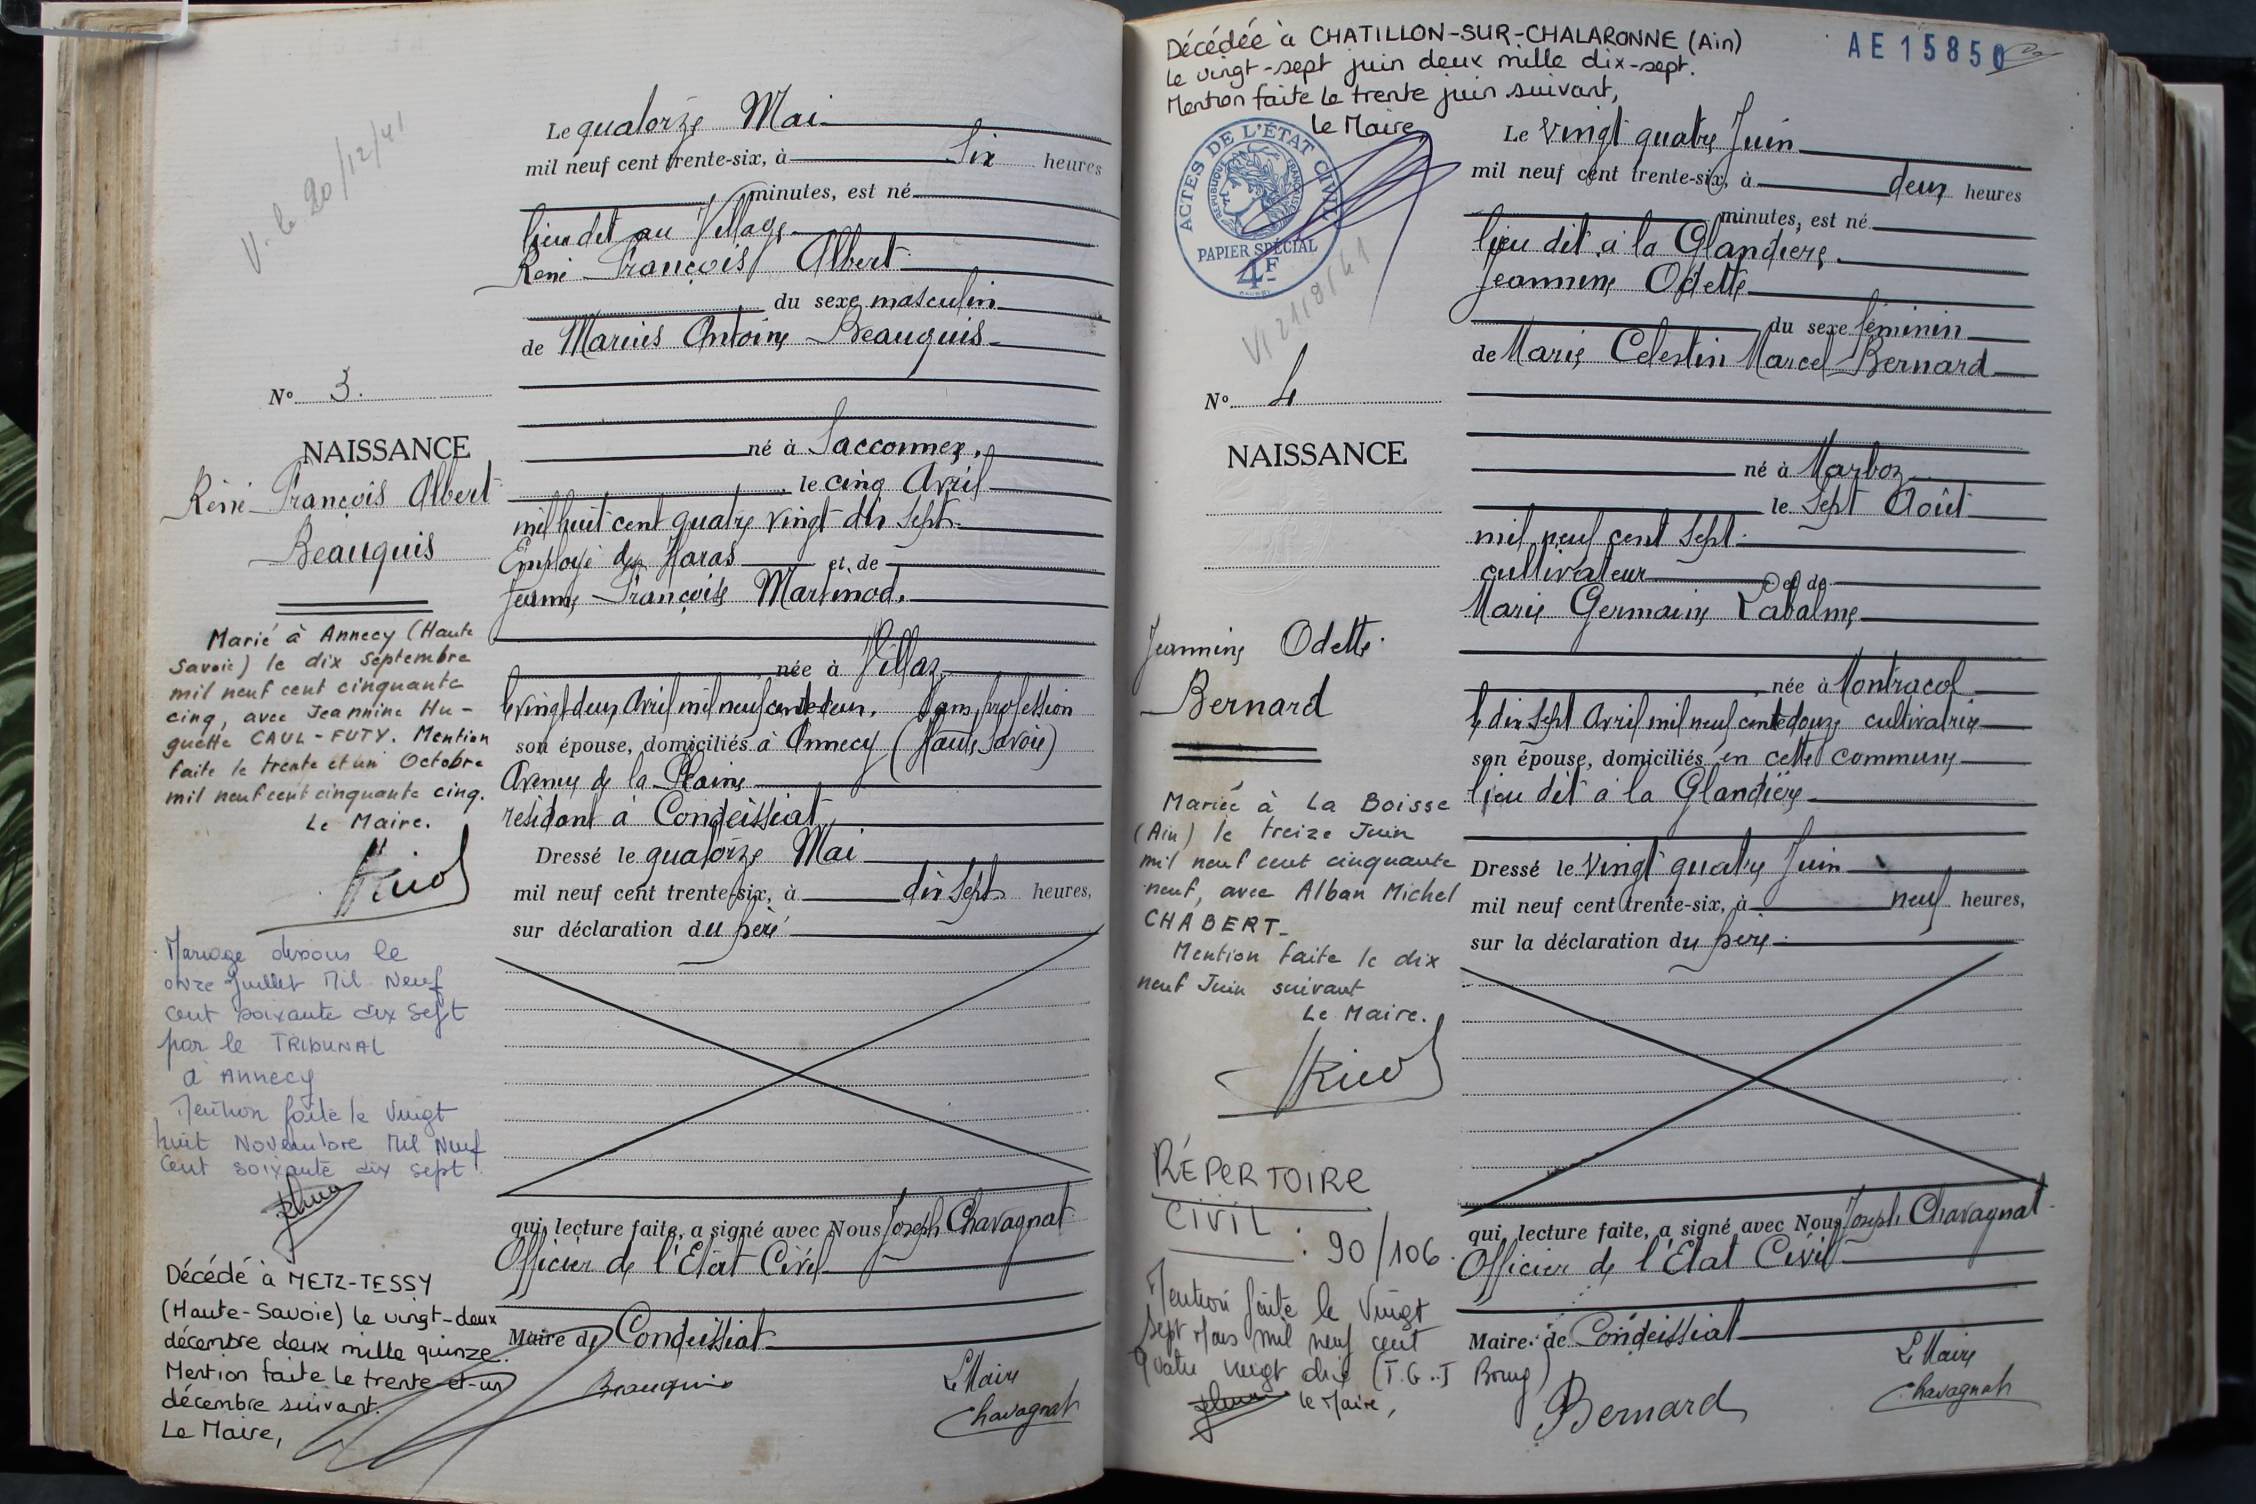 V. le 20/12/41
Le quatorze Mai
mil neuf cent trente-six, à Six heures
minutes, est né
lieu dit au Village
René François Albert
du sexe masculin
de Marius Antoine Beauquis
N° 3.
NAISSANCE
René François Albert
Beauquis
né à Sacconnex,
le cinq Avril
mil huit cent quatre vingt dix sept.
Employé des Haras et de
Jeanne Françoise Martinod.
née à Villaz
le vingt deux Avril mil neuf cent deux. Sans profession
son épouse, domiciliés à Annecy (Haute Savoie)
Avenue de la Plaine
résidant à Condeissiat
Dressé le quatorze Mai
mil neuf cent trente-six, à dix sept heures,
sur déclaration du père
qui, lecture faite, a signé avec Nous Joseph Chavagnat
Officier de l'Etat Civil
Maire de Condeissiat
Beauquis
Le Maire
Chavagnat
Marié à Annecy (Haute
Savoie) le dix Septembre
mil neuf cent cinquante
cinq, avec Jeannine Hu-
guette CAUL-FUTY. Mention
faite le trente et un Octobre
mil neuf cent cinquante cinq.
Le Maire.
Mariage dissous le
onze Juillet Mil Neuf
cent soixante dix sept
par le TRIBUNAL
d'ANNECY
Mention faite le Vingt
huit Novembre Mil Neuf
Cent soixante dix sept
Décédé à METZ-TESSY
(Haute-Savoie) le vingt-deux
décembre deux mille quinze.
Mention faite le trente-et-un
décembre suivant.
Le Maire,
Décédée à CHATILLON-SUR-CHALARONNE (Ain)
le vingt-sept juin deux mille dix-sept.
Mention faite le trente juin suivant,
Le Maire,
AE15850
ACTES DE L'ÉTAT CIVIL
RÉPUBLIQUE FRANÇAISE
PAPIER SPÉCIAL
4F
V, 21/8/41
Le vingt quatre Juin
mil neuf cent trente-six, à deux heures
minutes, est né
lieu dit à la Glandière
Jeannine Odette
du sexe féminin
de Marie Celestin Marcel Bernard
N° 4
NAISSANCE
Jeannine Odette
Bernard
né à Marboz
le Sept Août
mil neuf cent sept.
cultivateur et de
Marie Germaine Labalme
née à Montracol
le dix sept Avril mil neuf cent douze cultivatrice
son épouse, domiciliés en cette commune
lieu dit à la Glandière
Dressé le vingt quatre Juin
mil neuf cent trente-six, à neuf heures,
sur la déclaration du père
qui, lecture faite, a signé avec Nous Joseph Chavagnat
Officier de l'Etat Civil
Maire de Condeissiat
Bernard
Le Maire
Chavagnat
Mariée à La Boisse
(Ain) le treize Juin
mil neuf cent cinquante
neuf, avec Alban Michel
CHABERT.
Mention faite le dix
neuf Juin suivant
Le Maire.
RÉPERTOIRE
CIVIL : 90/106.
Mention faite le Vingt
sept Mars mil neuf cent
quatre vingt dix (T.G.I Bourg)
Le Maire,